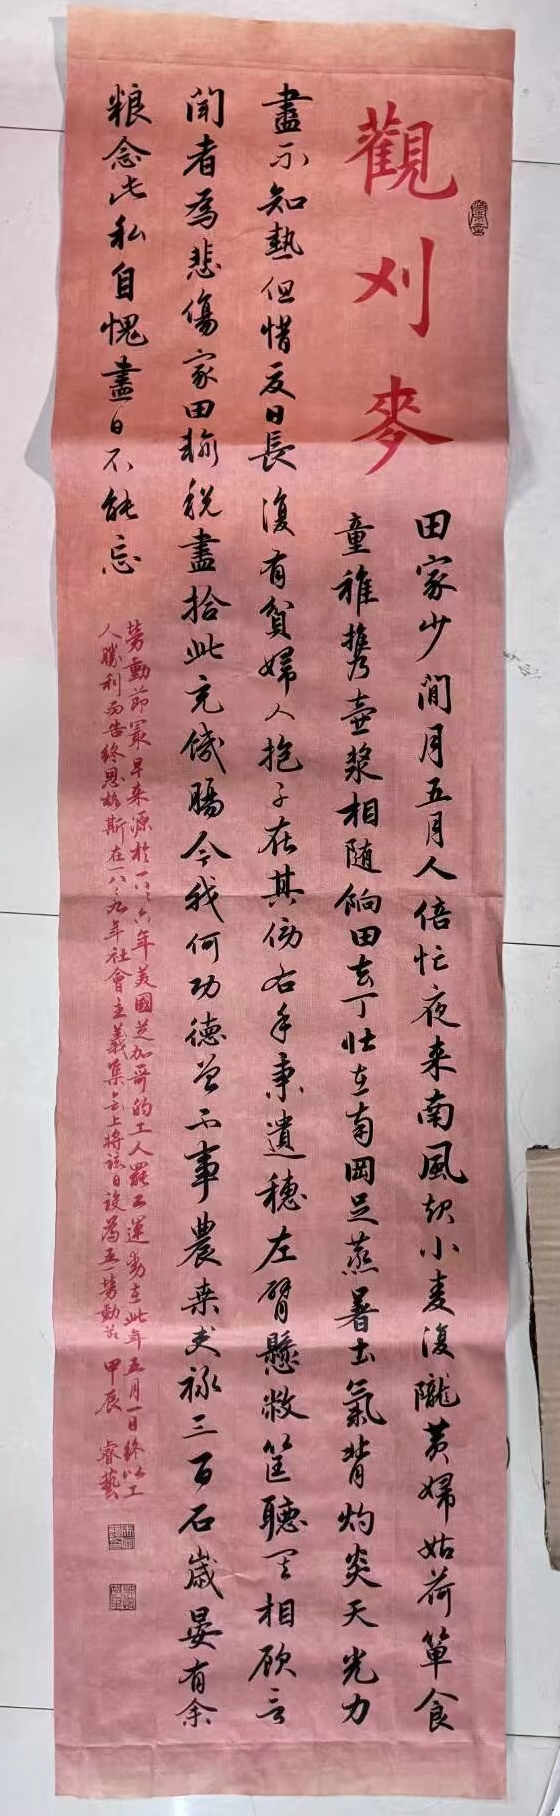 觀刈麥
田家少閒月五月人倍忙夜来南風起小麦復隴黄婦姑荷箪食
童稚携壶漿相随餉田去丁壮在南岡足蒸暑土氣背灼炎天光力
盡不知熱但惜夏日長復有贫婦人抱子在其傍右手秉遺穗左臂懸敝筐聽其相顾言
闻者為悲傷家田输税盡拾此充饑腸今我何功德曾不事農桒吏禄三百石歲晏有余
粮念此私自愧盡日不能忘
劳動節最早来源於一八八六年美國芝加哥的工人罷工運動在此年五月一日終以工
人勝利而告終恩格斯在一八八九年社會主義集会上将該日設為五一劳動节 甲辰 睿藝